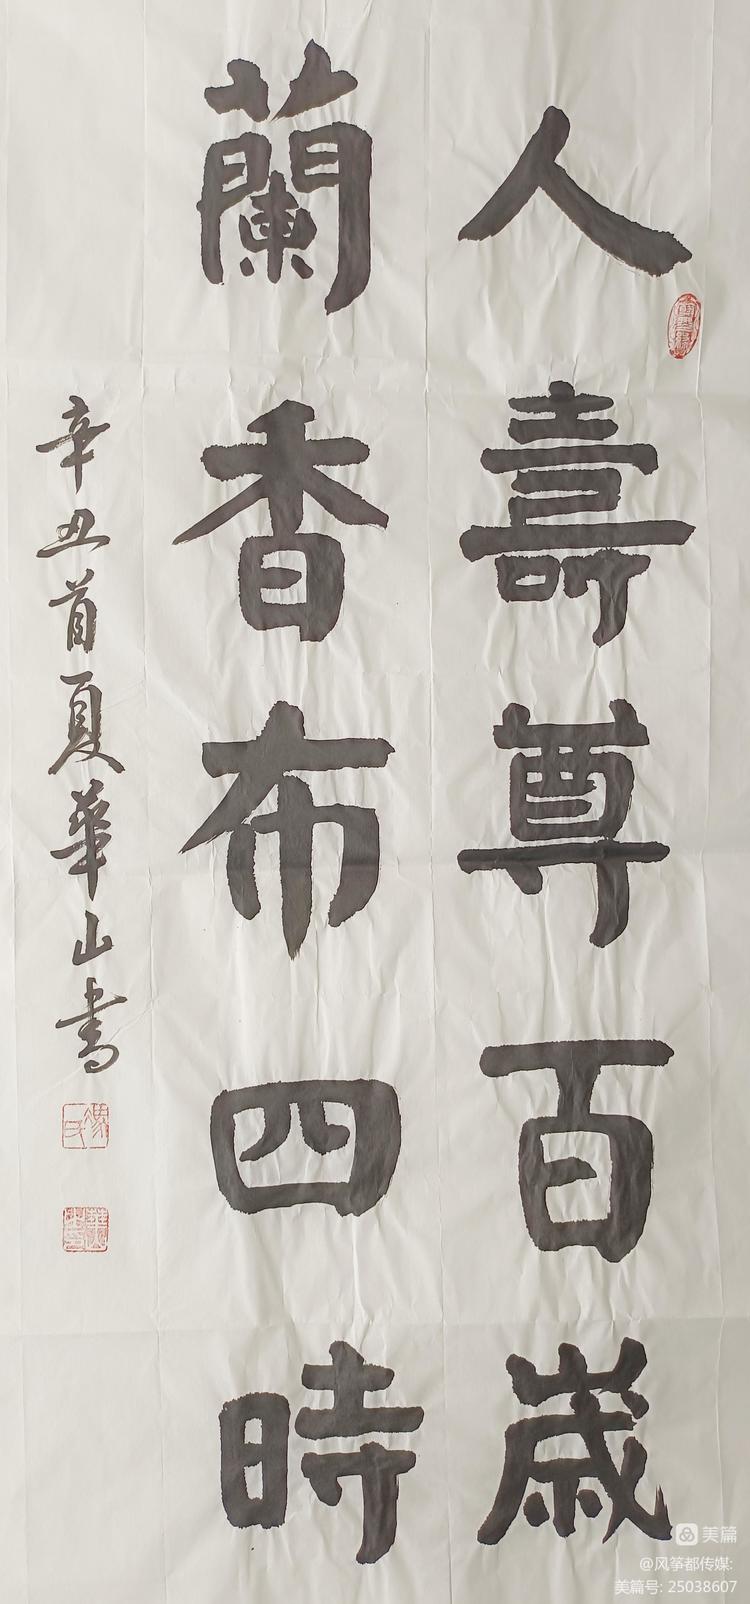 人壽尊百歲
蘭香布四時
辛丑首夏華山書
美篇
@风筝都传媒:
美篇号: 25038607